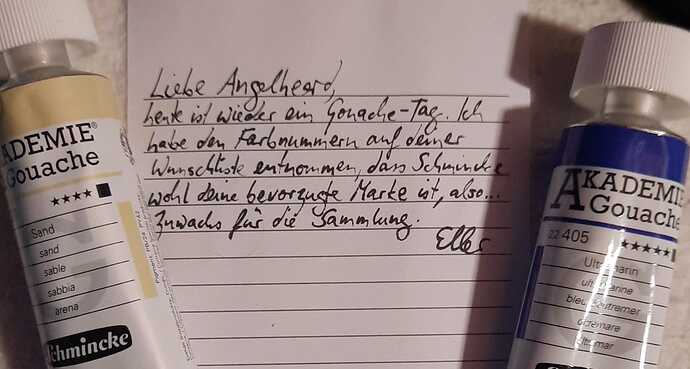 KADEMIE®
Gouache
★★★★ ■
Sand
sand
sable
sabbia
arena
Schmincke
Liebe Angelheard,
heute ist wieder ein Gouache-Tag. Ich
habe den Farbnummern auf deiner
Wunschliste entnommen, dass Schmincke
wohl deine bevorzugte Marke ist, also...
Zuwachs für die Sammlung.
Elles
AKADEMIE
Gouache
22 405
★★★★★
Ultramarin
ultramarine
bleu outremer
oltremare
ultramar
Schmincke